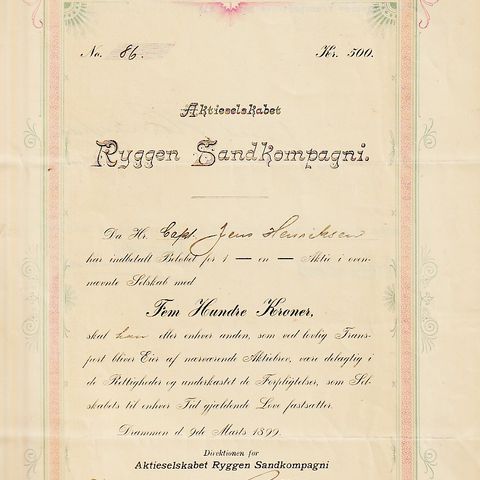 No. 86. Kr. 500.
Aktieselskabet
Ryggen Sandkompagni.
Da Hr. Capt. Jens Henriksen
har indbetalt Beløbet for 1 — en — Aktie i oven-
nævnte Selskab med
Fem Hundre Kroner,
skal han eller enhver anden, som ved lovlig Trans-
port bliver Eier af nærværende Aktiebrev, være delagtig i
de Rettigheder og underkastet de Forpligtelser, som Sel-
skabets til enhver Tid gjældende Love fastsætter.
Drammen d. 9de Marts 1899.
Direktionen for
Aktieselskabet Ryggen Sandkompagni